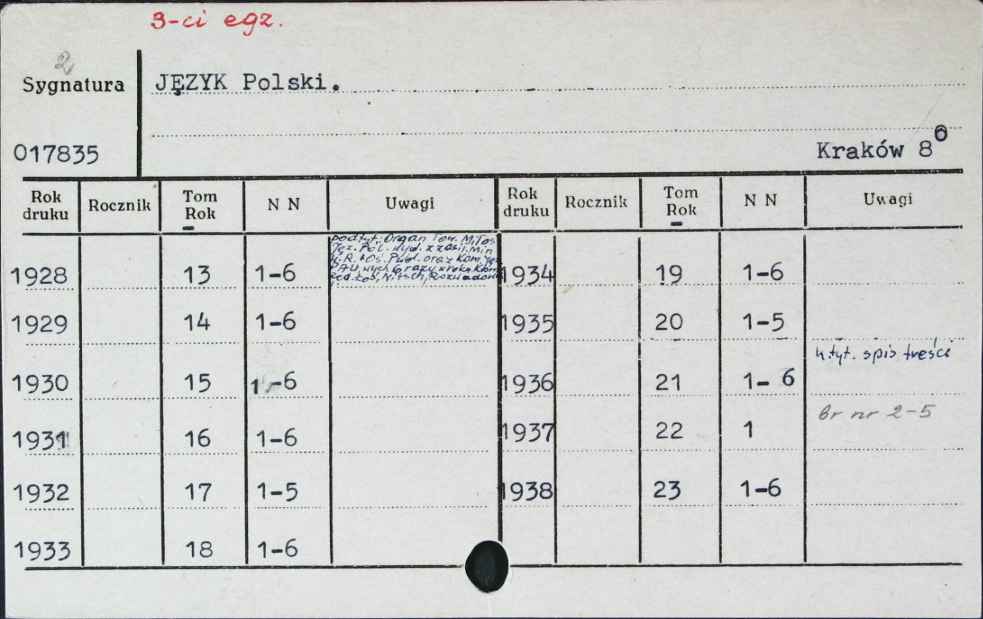 3-ci egz.
2
Sygnatura JĘZYK Polski.
017835 Kraków 8⁶
Rok druku Rocznik Tom Rok N N Uwagi Rok druku Rocznik Tom Rok N N Uwagi
podtyt. Organ Tow. Miłoś
Jęz. Pol. wyd. z zasił. Min
W.R. i Oś. Publ. oraz Kom. Jęz.
P.A.U. wych. 6 razy w roku
Red. Łoś, Nitsch, Rozwadow
1928 13 1-6 1934 19 1-6
1929 14 1-6 1935 20 1-5
k.tyt. spis treści
1930 15 1-6 1936 21 1-6
br nr 2-5
1931 16 1-6 1937 22 1
1932 17 1-5 1938 23 1-6
1933 18 1-6